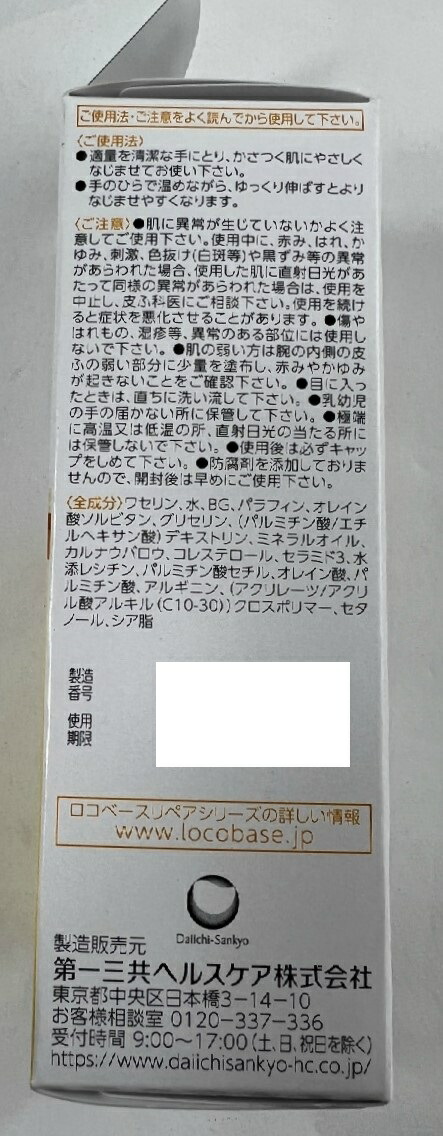 ご使用法・ご注意をよく読んでから使用して下さい。
〈ご使用法〉
●適量を清潔な手にとり、かさつく肌にやさしく
なじませてお使い下さい。
●手のひらで温めながら、ゆっくり伸ばすとより
なじませやすくなります。
〈ご注意〉●肌に異常が生じていないかよく注
意してご使用下さい。使用中に、赤み、はれ、か
ゆみ、刺激、色抜け(白斑等)や黒ずみ等の異常
があらわれた場合、使用した肌に直射日光があ
たって同様の異常があらわれた場合は、使用を
中止し、皮ふ科医にご相談下さい。使用を続け
ると症状を悪化させることがあります。●傷や
はれもの、湿疹等、異常のある部位には使用し
ないで下さい。●肌の弱い方は腕の内側の皮
ふの弱い部分に少量を塗布し、赤みやかゆみ
が起きないことをご確認下さい。●目に入っ
たときは、直ちに洗い流して下さい。●乳幼児
の手の届かない所に保管して下さい。●極端
に高温又は低温の所、直射日光の当たる所に
は保管しないで下さい。●使用後は必ずキャッ
プをしめて下さい。●防腐剤を添加しておりま
せんので、開封後は早めにご使用下さい。
〈全成分〉ワセリン、水、BG、パラフィン、オレイン
酸ソルビタン、グリセリン、(パルミチン酸/エチ
ルヘキサン酸)デキストリン、ミネラルオイル、
カルナウバロウ、コレステロール、セラミド3、水
添レシチン、パルミチン酸セチル、オレイン酸、パ
ルミチン酸、アルギニン、(アクリレーツ/アクリ
ル酸アルキル(C10-30))クロスポリマー、セタ
ノール、シア脂
製造
番号
使用
期限
ロコベースリペアシリーズの詳しい情報
www.locobase.jp
Daiichi-Sankyo
製造販売元
第一三共ヘルスケア株式会社
東京都中央区日本橋3-14-10
お客様相談室 0120-337-336
受付時間 9:00〜17:00(土、日、祝日を除く)
https://www.daiichisankyo-hc.co.jp/